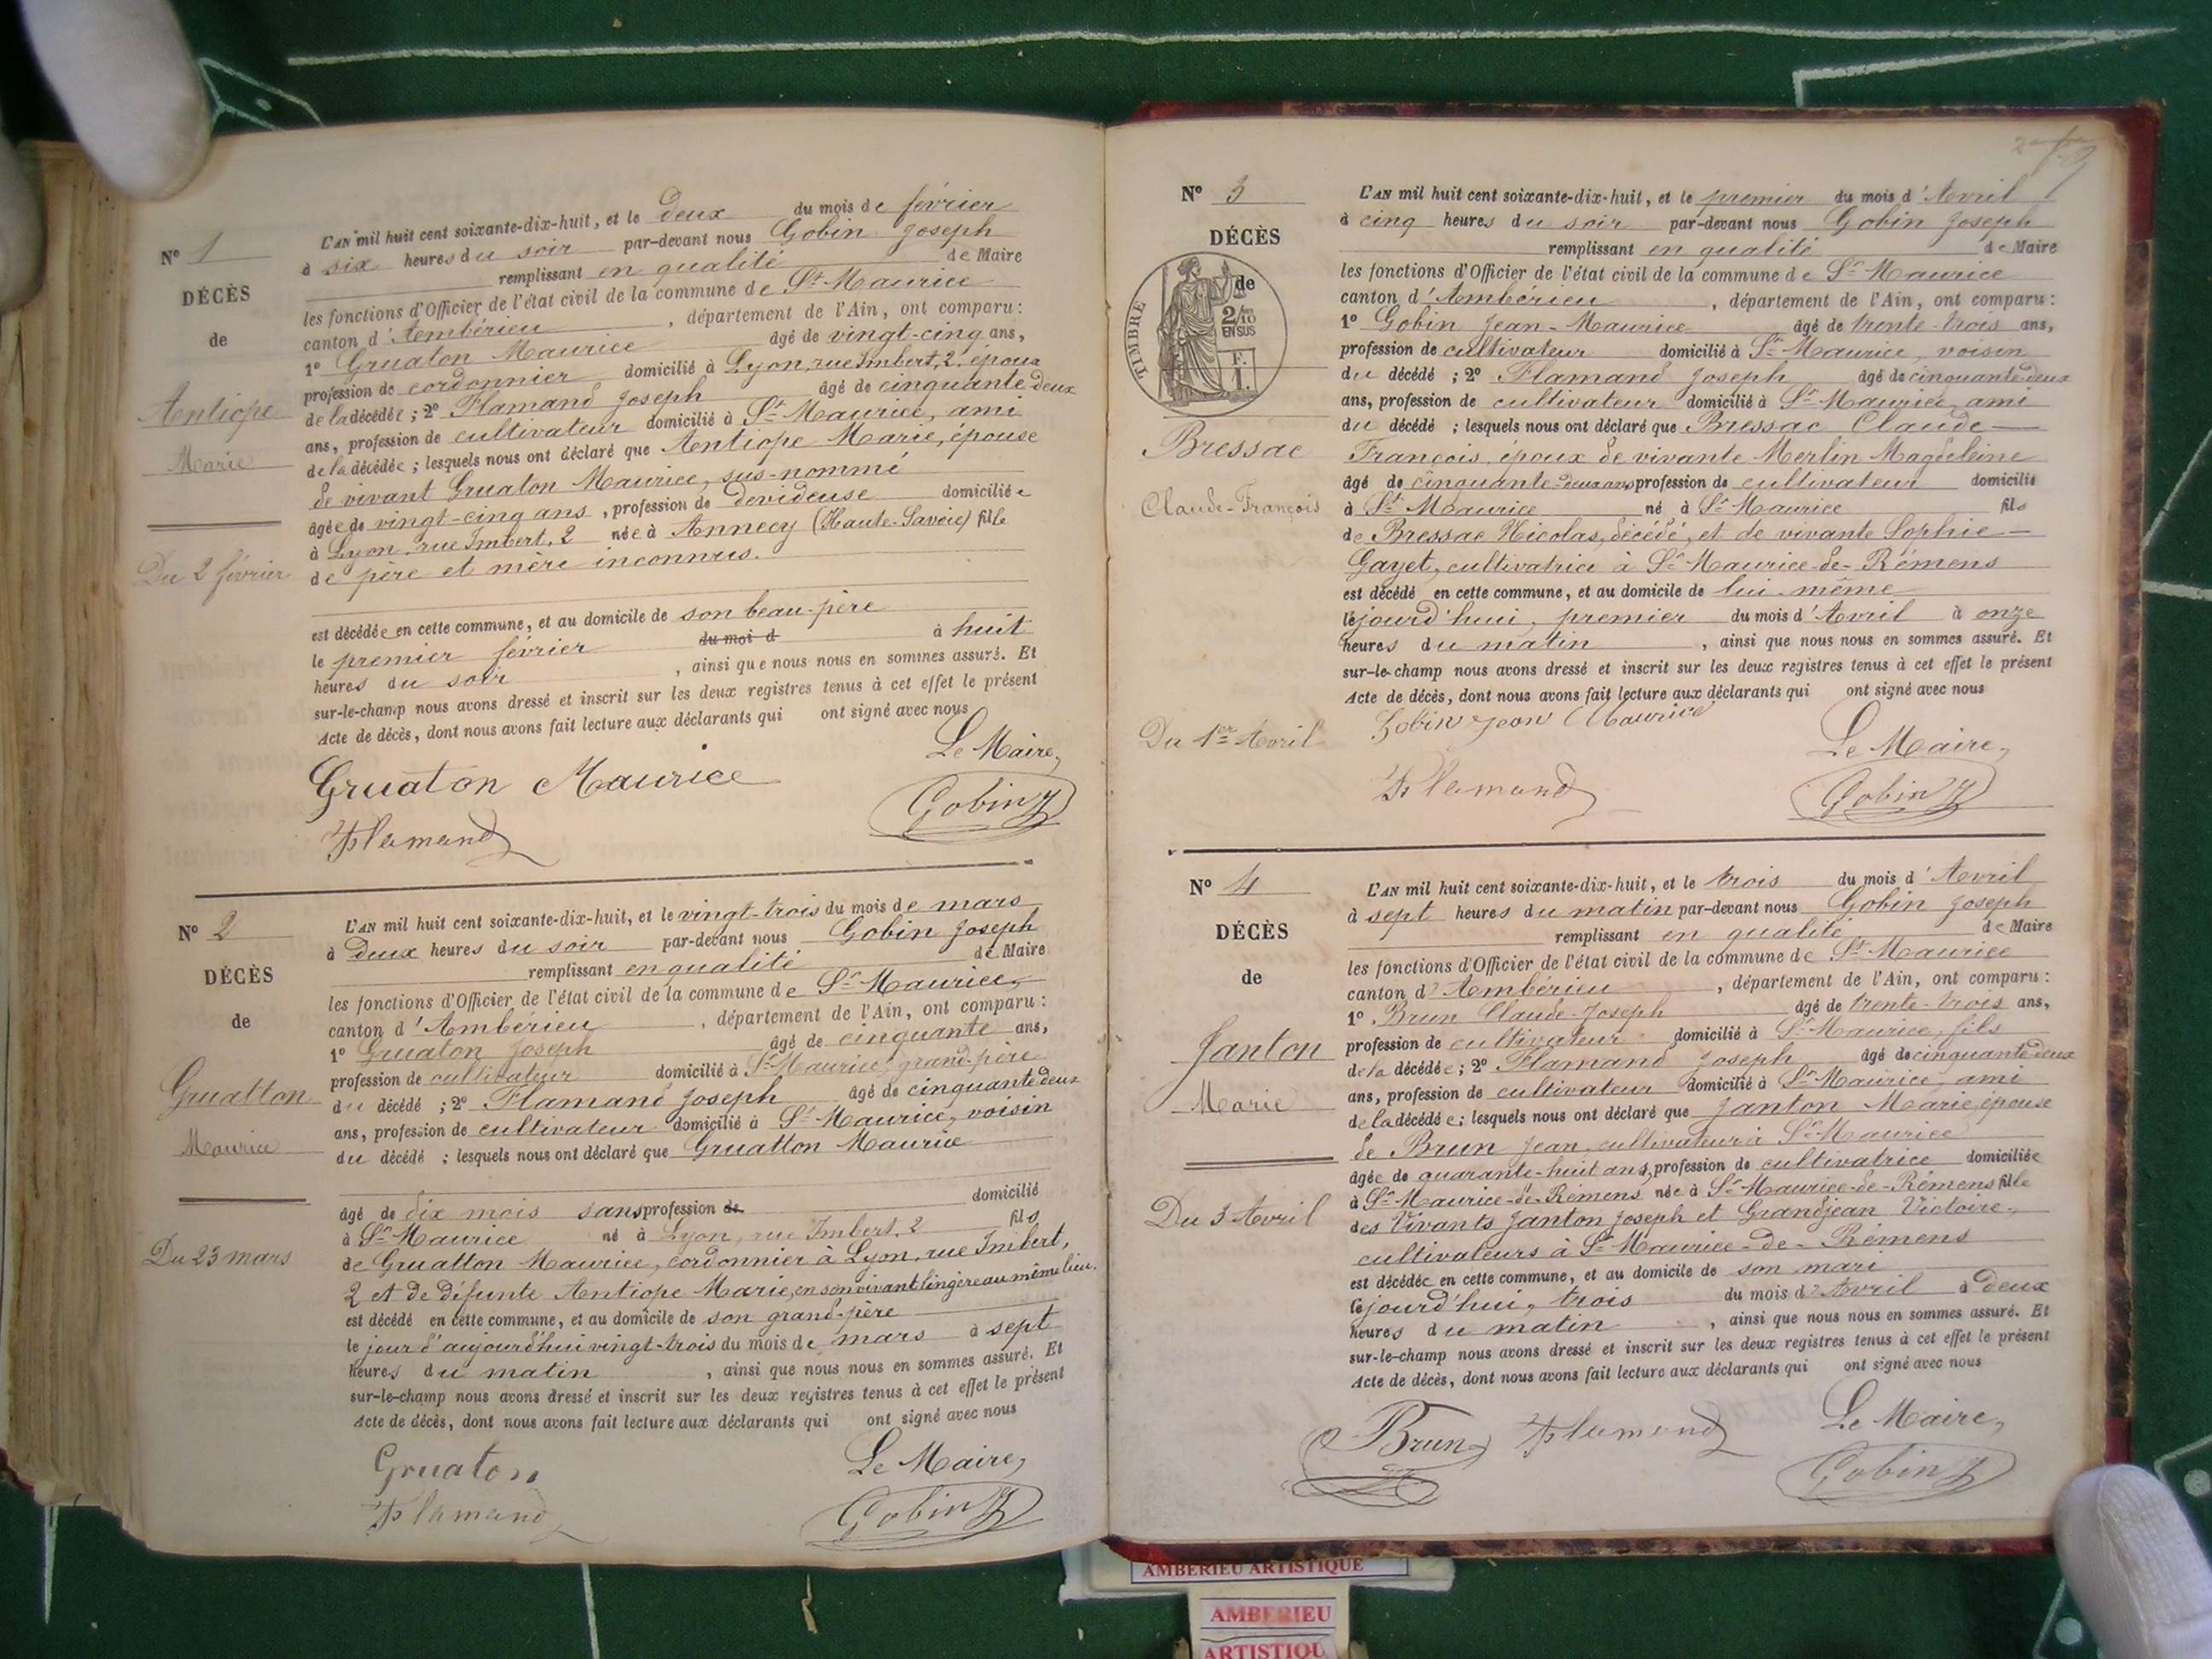 Nº 1
DÉCÈS
de
Antiope
Marie
Du 2 février
L'AN mil huit cent soixante-dix-huit, et le deux du mois de février
à six heures du soir par-devant nous Gobin Joseph
remplissant en qualité de Maire
les fonctions d'Officier de l'état civil de la commune de St Maurice
canton d'Ambérieu, département de l'Ain, ont comparu:
1º Gruaton Maurice âgé de vingt-cinq ans,
profession de cordonnier domicilié à Lyon, rue Imbert, 2, époux
de la décédée; 2º Flamand Joseph âgé de cinquante deux
ans, profession de cultivateur domicilié à St Maurice, ami
de la décédée; lesquels nous ont déclaré que Antiope Marie, épouse
de vivant Gruaton Maurice, sus-nommé
âgée de vingt-cinq ans, profession de devideuse domiciliée
à Lyon, rue Imbert, 2 née à Annecy (Haute-Savoie) fille
de père et mère inconnus.
est décédée en cette commune, et au domicile de son beau-père
le premier février du moi d à huit
heures du soir, ainsi que nous nous en sommes assuré. Et
sur-le-champ nous avons dressé et inscrit sur les deux registres tenus à cet effet le présent
Acte de décès, dont nous avons fait lecture aux déclarants qui ont signé avec nous
Le Maire,
Gruaton Maurice
Gobin J
Flamand
Nº 2
DÉCÈS
de
Gruatton
Maurice
Du 23 mars
L'AN mil huit cent soixante-dix-huit, et le vingt-trois du mois de mars
à deux heures du soir par-devant nous Gobin Joseph
remplissant en qualité de Maire
les fonctions d'Officier de l'état civil de la commune de St Maurice,
canton d'Ambérieu, département de l'Ain, ont comparu:
1º Gruaton Joseph âgé de cinquante ans,
profession de cultivateur domicilié à St Maurice, grand-père
du décédé; 2º Flamand Joseph âgé de cinquante deux
ans, profession de cultivateur domicilié à St Maurice, voisin
du décédé; lesquels nous ont déclaré que Gruatton Maurice
âgé de dix mois sans profession de domicilié
à St Maurice né à Lyon, rue Imbert, 2 fils
de Gruatton Maurice, cordonnier à Lyon, rue Imbert,
2 et de défunte Antiope Marie, en son vivant lingère au même lieu.
est décédé en cette commune, et au domicile de son grand-père
le jour d'aujourd'hui vingt-trois du mois de mars à sept
heures du matin, ainsi que nous nous en sommes assuré. Et
sur-le-champ nous avons dressé et inscrit sur les deux registres tenus à cet effet le présent
Acte de décès, dont nous avons fait lecture aux déclarants qui ont signé avec nous
Gruaton
Le Maire,
Flamand
Gobin J
Nº 3
DÉCÈS
de
TIMBRE
2/10
EN SUS
F.
1.
Bressac
Claude-François
Du 1er Avril
L'AN mil huit cent soixante-dix-huit, et le premier du mois d'Avril
à cinq heures du soir par-devant nous Gobin Joseph
remplissant en qualité de Maire
les fonctions d'Officier de l'état civil de la commune de St Maurice
canton d'Ambérieu, département de l'Ain, ont comparu:
1º Gobin Jean-Maurice âgé de trente-trois ans,
profession de cultivateur domicilié à St Maurice, voisin
du décédé; 2º Flamand Joseph âgé de cinquante deux
ans, profession de cultivateur domicilié à St Maurice, ami
du décédé; lesquels nous ont déclaré que Bressac Claude
François, époux de vivante Merlin Magdeleine
âgé de cinquante-deux ans profession de cultivateur domicilié
à St Maurice né à St Maurice fils
de Bressac Nicolas, décédé, et de vivante Sophie
Gayet, cultivatrice à St Maurice-de-Rémens
est décédé en cette commune, et au domicile de lui-même
le jourd'hui, premier du mois d'Avril à onze
heures du matin, ainsi que nous nous en sommes assuré. Et
sur-le-champ nous avons dressé et inscrit sur les deux registres tenus à cet effet le présent
Acte de décès, dont nous avons fait lecture aux déclarants qui ont signé avec nous
Gobin Jean Maurice
Le Maire,
Flamand
Gobin J
Nº 4
DÉCÈS
de
Janton
Marie
Du 3 Avril
L'AN mil huit cent soixante-dix-huit, et le trois du mois d'Avril
à sept heures du matin par-devant nous Gobin Joseph
remplissant en qualité de Maire
les fonctions d'Officier de l'état civil de la commune de St Maurice
canton d'Ambérieu, département de l'Ain, ont comparu:
1º Brun Claude-Joseph âgé de trente-trois ans,
profession de cultivateur domicilié à St Maurice, fils
de la décédée; 2º Flamand Joseph âgé de cinquante deux
ans, profession de cultivateur domicilié à St Maurice, ami
de la décédée; lesquels nous ont déclaré que Janton Marie, épouse
de Brun Jean, cultivateur à St Maurice
âgée de quarante-huit ans, profession de cultivatrice domiciliée
à St Maurice-de-Rémens, née à St Maurice-de-Rémens fille
des vivants Janton Joseph et Grandjean Victoire,
cultivateurs à St Maurice-de-Rémens
est décédée en cette commune, et au domicile de son mari
le jourd'hui, trois du mois d'Avril à deux
heures du matin, ainsi que nous nous en sommes assuré. Et
sur-le-champ nous avons dressé et inscrit sur les deux registres tenus à cet effet le présent
Acte de décès, dont nous avons fait lecture aux déclarants qui ont signé avec nous
Le Maire,
Brun Flamand
Gobin J
AMBERIEU ARTISTIQUE
AMBERIEU
ARTISTIQU